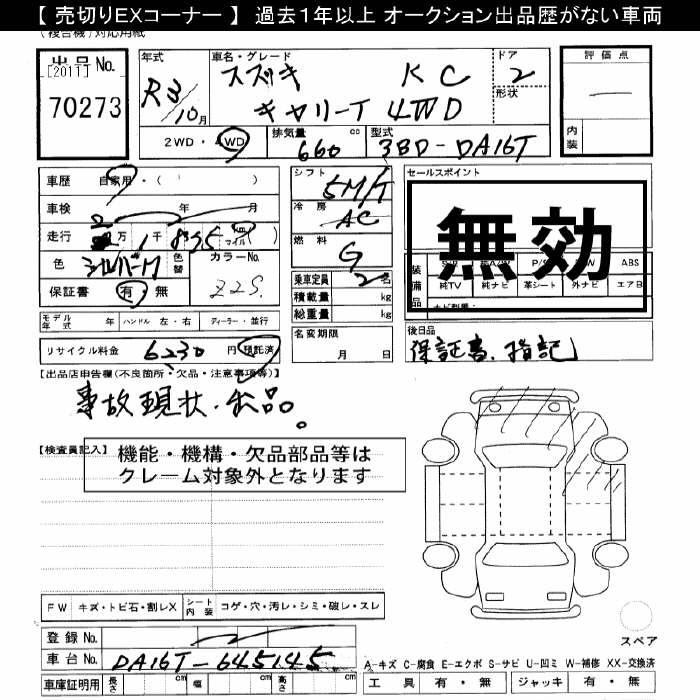 【 売切りEXコーナー 】 過去1年以上 オークション出品歴がない車両
(複合機)対応用紙
出品No.
[2011]
70273
年式
R3/10月
車名・グレード
スズキ KC
キャリーT 4WD
ドア
2
形状
評価点
内装
2WD・4WD
排気量 660 cc
型式 3BD-DA16T
車歴 自家用・( )
車検 年 月
走行 万 1千 835 km マイル
色 シルバーM
色替
カラーNo. Z2S.
保証書 有 無
シフト 5M/T
冷房 AC
燃料 G
乗車定員 2名
積載量 kg
総重量 kg
セールスポイント
無効
装備品
ABS
純TV 純ナビ 革シート 外ナビ エアB
モデル年式 年 ハンドル 左・右 ディーラー・並行
名変期限 月 日
後日品
保証書、指記
リサイクル料金 6230 円 預託済
【出品店申告欄(不良箇所・欠品・注意事項等)】
事故現状・出品。
【検査員記入】
機能・機構・欠品部品等は
クレーム対象外となります
FW キズ・トビ石・割レX シート内装 コゲ・穴・汚レ・シミ・破レ・スレ
登録No.
車台No. DA16T-645145
車庫証明用 長さ cm 幅 cm 高さ cm
スペア
A-キズ C-腐食 E-エクボ S-サビ U-凹ミ W-補修 XX-交換済
工具 有・無 ジャッキ 有・無